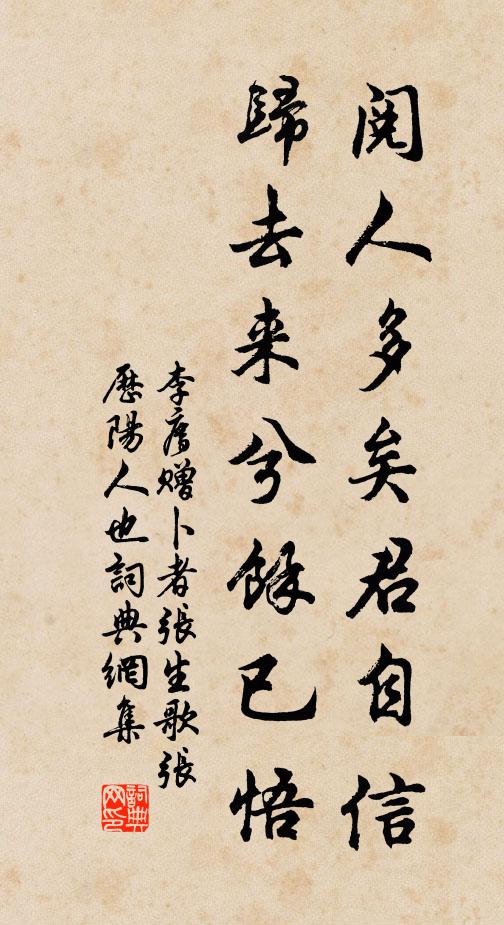 閱人多矣君自信
歸去来兮餘已悟
李廌贈卜者張生歌張
歷陽人也詞典網集
詞典网印